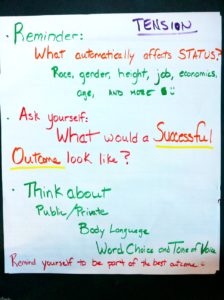 TENSION
• Reminder:
What automatically affects STATUS?
Race, gender, height, job, economics,
age, AND MORE
• Ask yourself:
What would a Successful
Outcome look like?
• Think about
Public/Private
Body Language
Word Choice and Tone of Voice
Remind yourself to be part of the best outcome